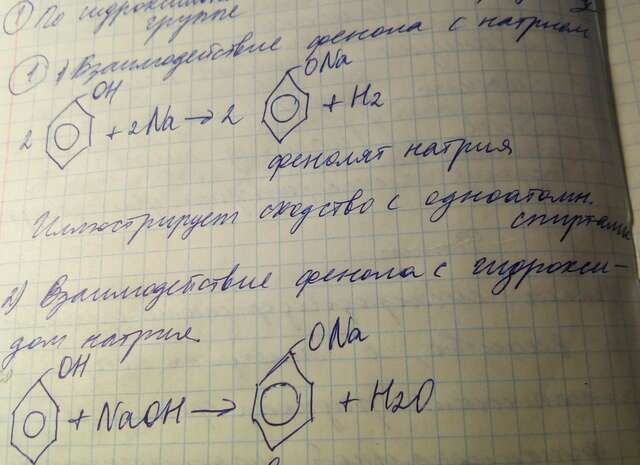 ① По гидроксильной
группе
① 1) Взаимодействие фенола с натрием
2 OH + 2Na → 2 ONa + H2
фенолят натрия
Иллюстрирует сходство с одноатомн.
спиртами
2) Взаимодействие фенола с гидрокси-
дом натрия
OH + NaOH → ONa + H2O